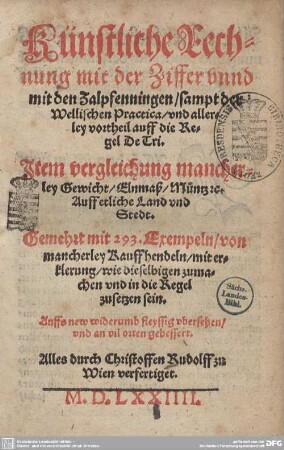 Künstliche Rech-
nung mit der Ziffer vnnd
mit den Zalpfenningen/sampt der
Wellischen Practica/vnd aller-
ley vortheil auff die Re-
gel De Tri.
Item vergleichung mancher-
ley Gewicht/Elnmaß/Müntz ꝛc.
Auff etliche Land vnd
Stedt.
Gemehrt mit 293. Exempeln/von
mancherley Kauffhendeln/mit er-
klerung/wie dieselbigen zuma-
chen vnd in die Regel
zusetzen sein.
Auffs new widerumb fleyssig vbersehen/
vnd an vil orten gebessert.
Alles durch Christoffen Rudolff zu
Wien verfertiget.
M. D. LXXIIII.
Sächs.
Landes-
Bibl.
DFG